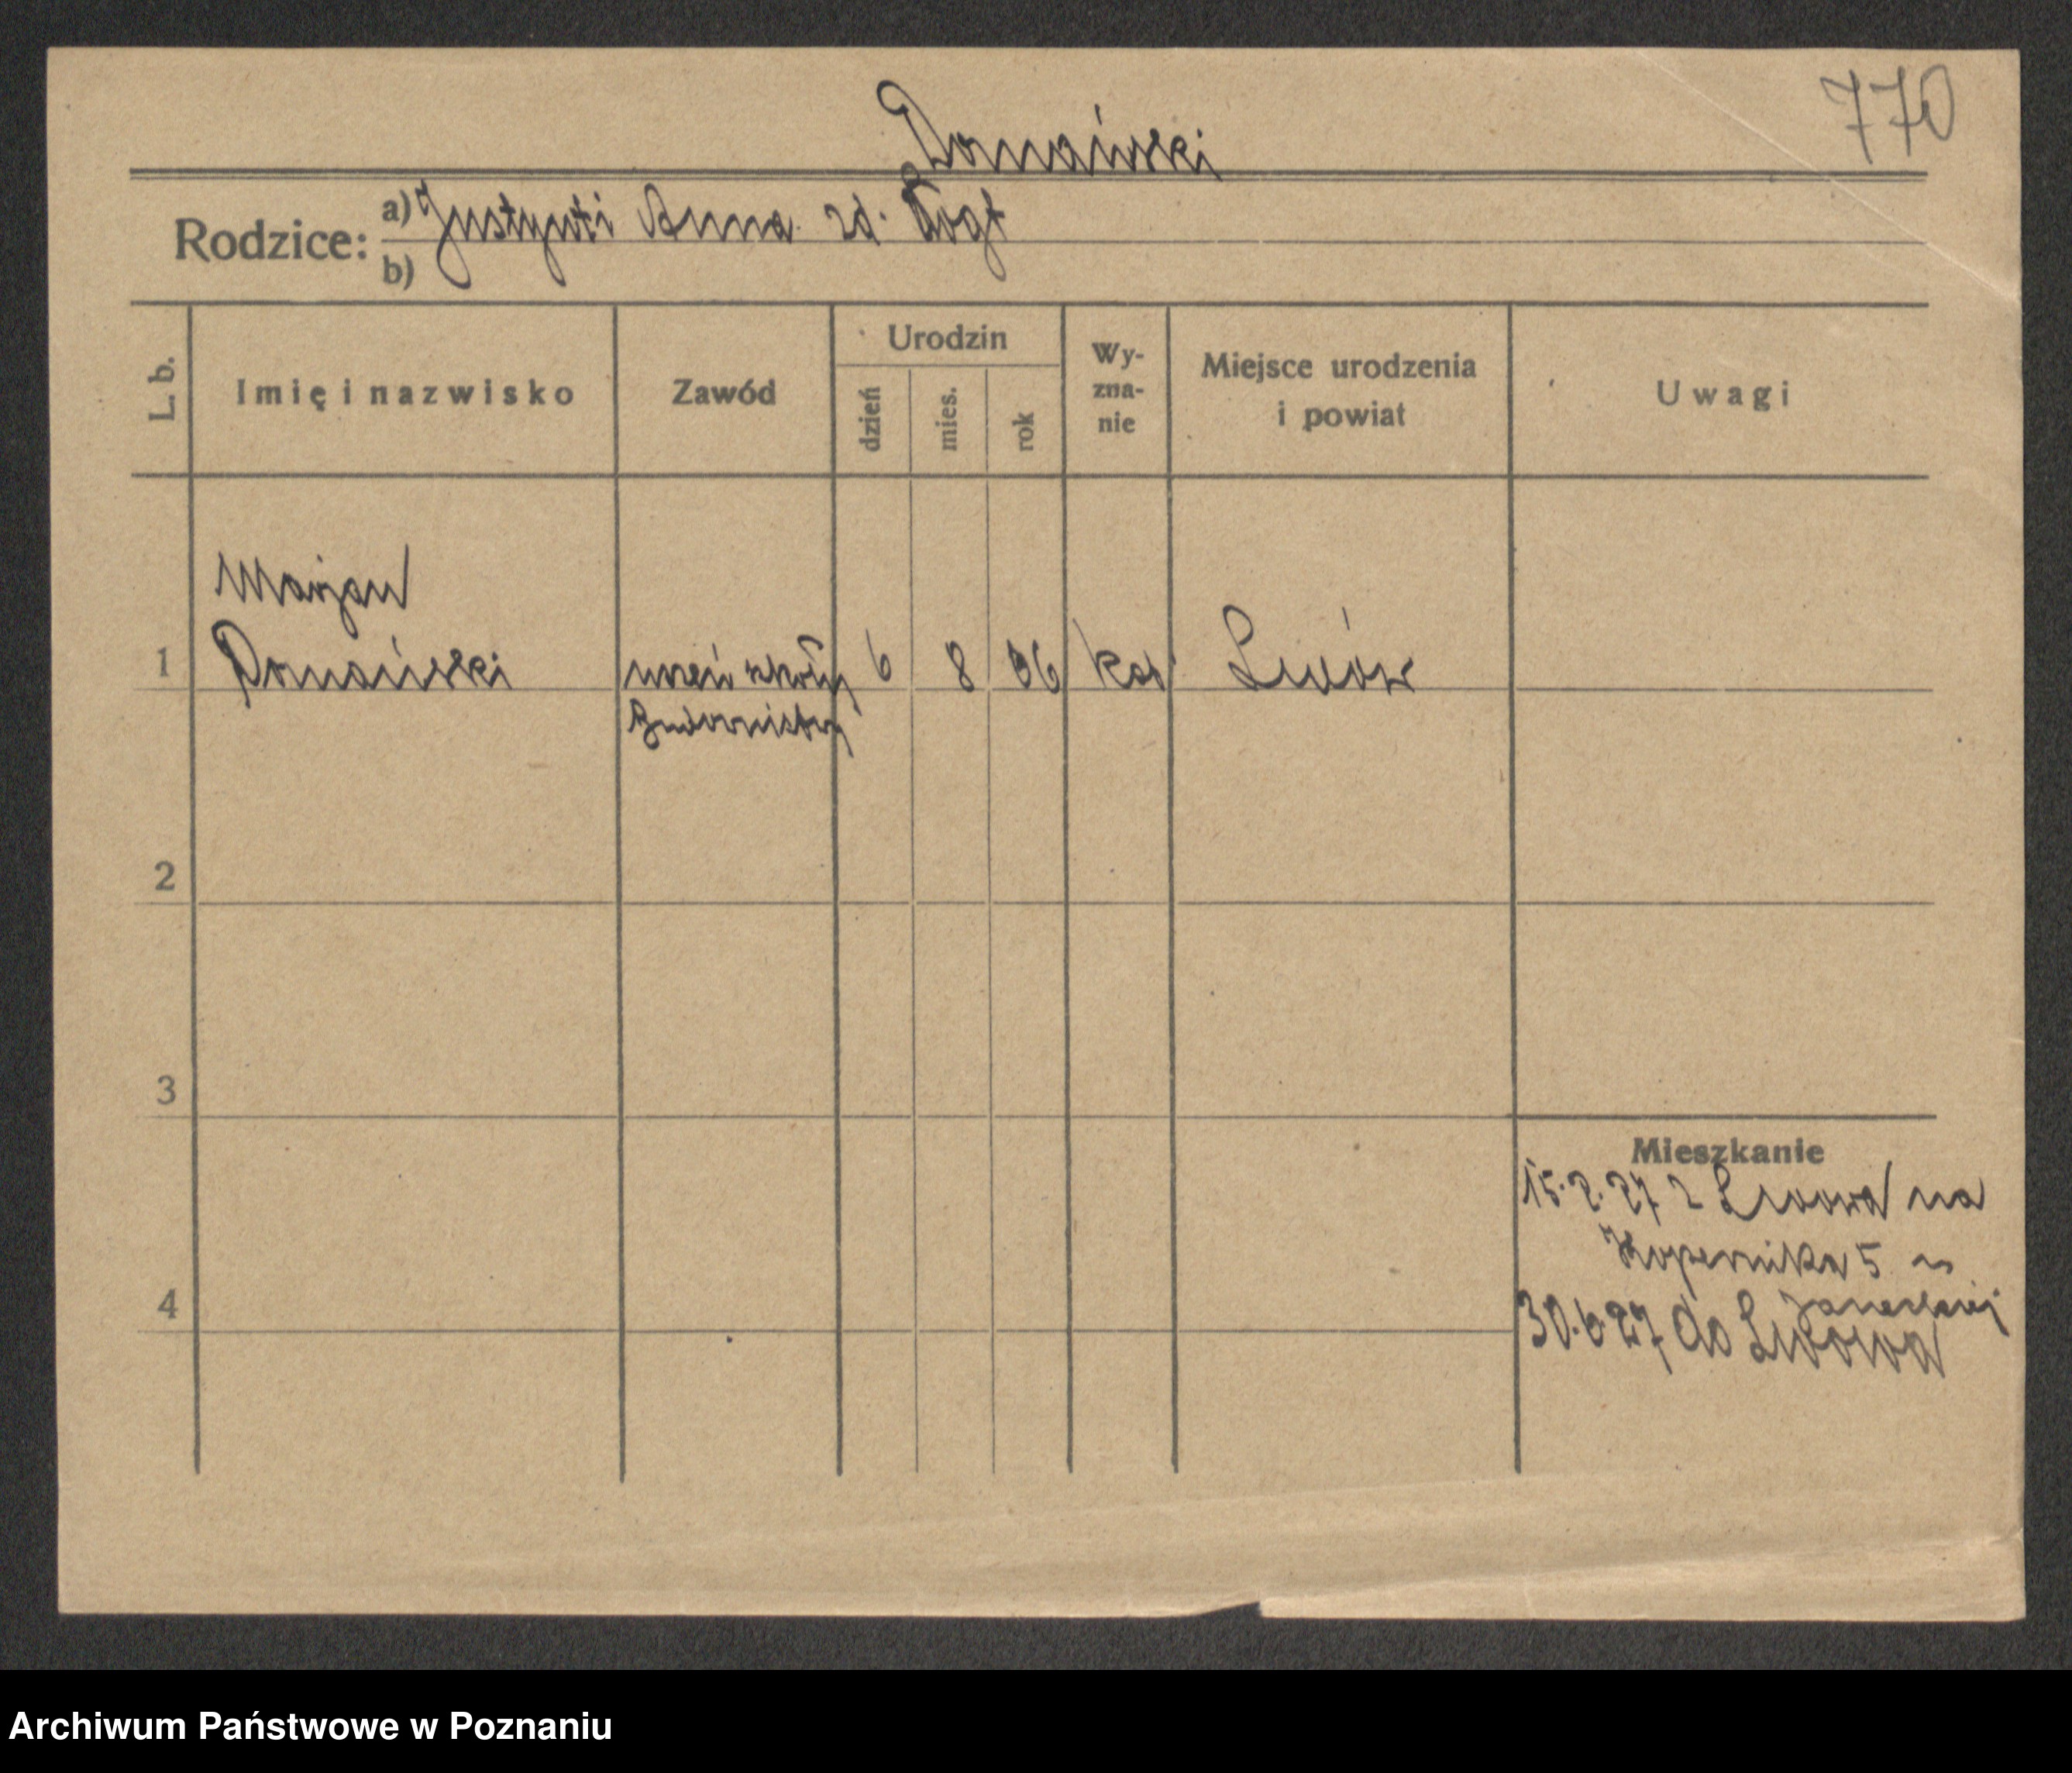 770
Domański
Rodzice: a) Justyn i Anna zd. Vogt
b)
L. b.
Imię i nazwisko
Zawód
Urodzin
dzień
mies.
rok
Wy-
zna-
nie
Miejsce urodzenia
i powiat
Uwagi
Marjan
1 Domański uczeń szkoły 6 8 06 kat Lwów
Budownictwa
2
3
Mieszkanie
15.2.27 z Lwowa na
Kopernika 5 u
4
30.6.27 do Lwowa
Archiwum Państwowe w Poznaniu